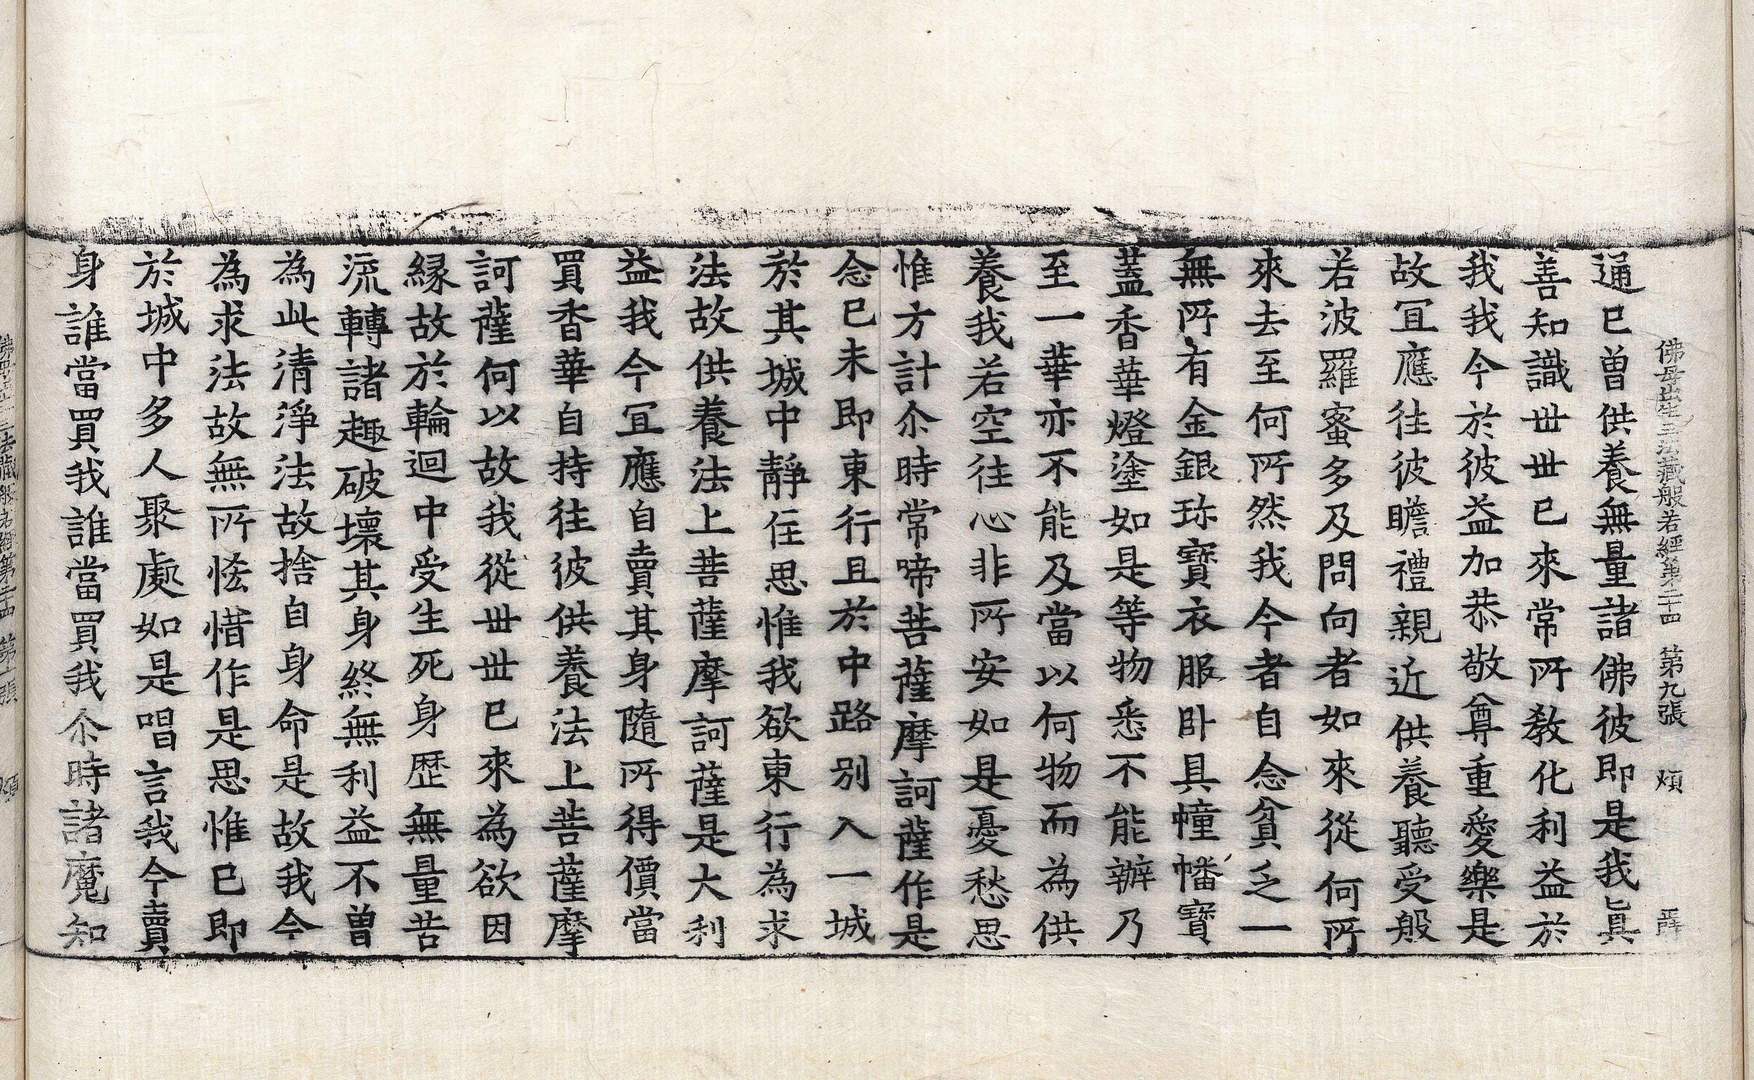 佛母出生三法藏般若經第二十四 第九張 煩
通已曾供養無量諸佛彼即是我眞
善知識丗丗已來常所敎化利益於
我我今於彼益加恭敬尊重愛樂是
故冝應往彼瞻禮親近供養聽受般
若波羅蜜多及問向者如來從何所
來去至何所然我今者自念貧乏一
無所有金銀珎寶衣服卧具幢幡寶
蓋香華燈塗如是等物悉不能辦乃
至一華亦不能及當以何物而為供
養我若空往心非所安如是憂愁思
惟方計尒時常啼菩薩摩訶薩作是
念已未即東行且於中路别入一城
於其城中靜住思惟我欲東行為求
法故供養法上菩薩摩訶薩是大利
益我今冝應自賣其身隨所得價當
買香華自持往彼供養法上菩薩摩
訶薩何以故我從丗丗已來為欲因
縁故於輪迴中受生死身歷無量苦
流轉諸趣破壞其身終無利益不曽
為此清淨法故捨自身命是故我今
為求法故無所恡惜作是思惟已即
於城中多人聚處如是唱言我今賣
身誰當買我誰當買我尒時諸魔知